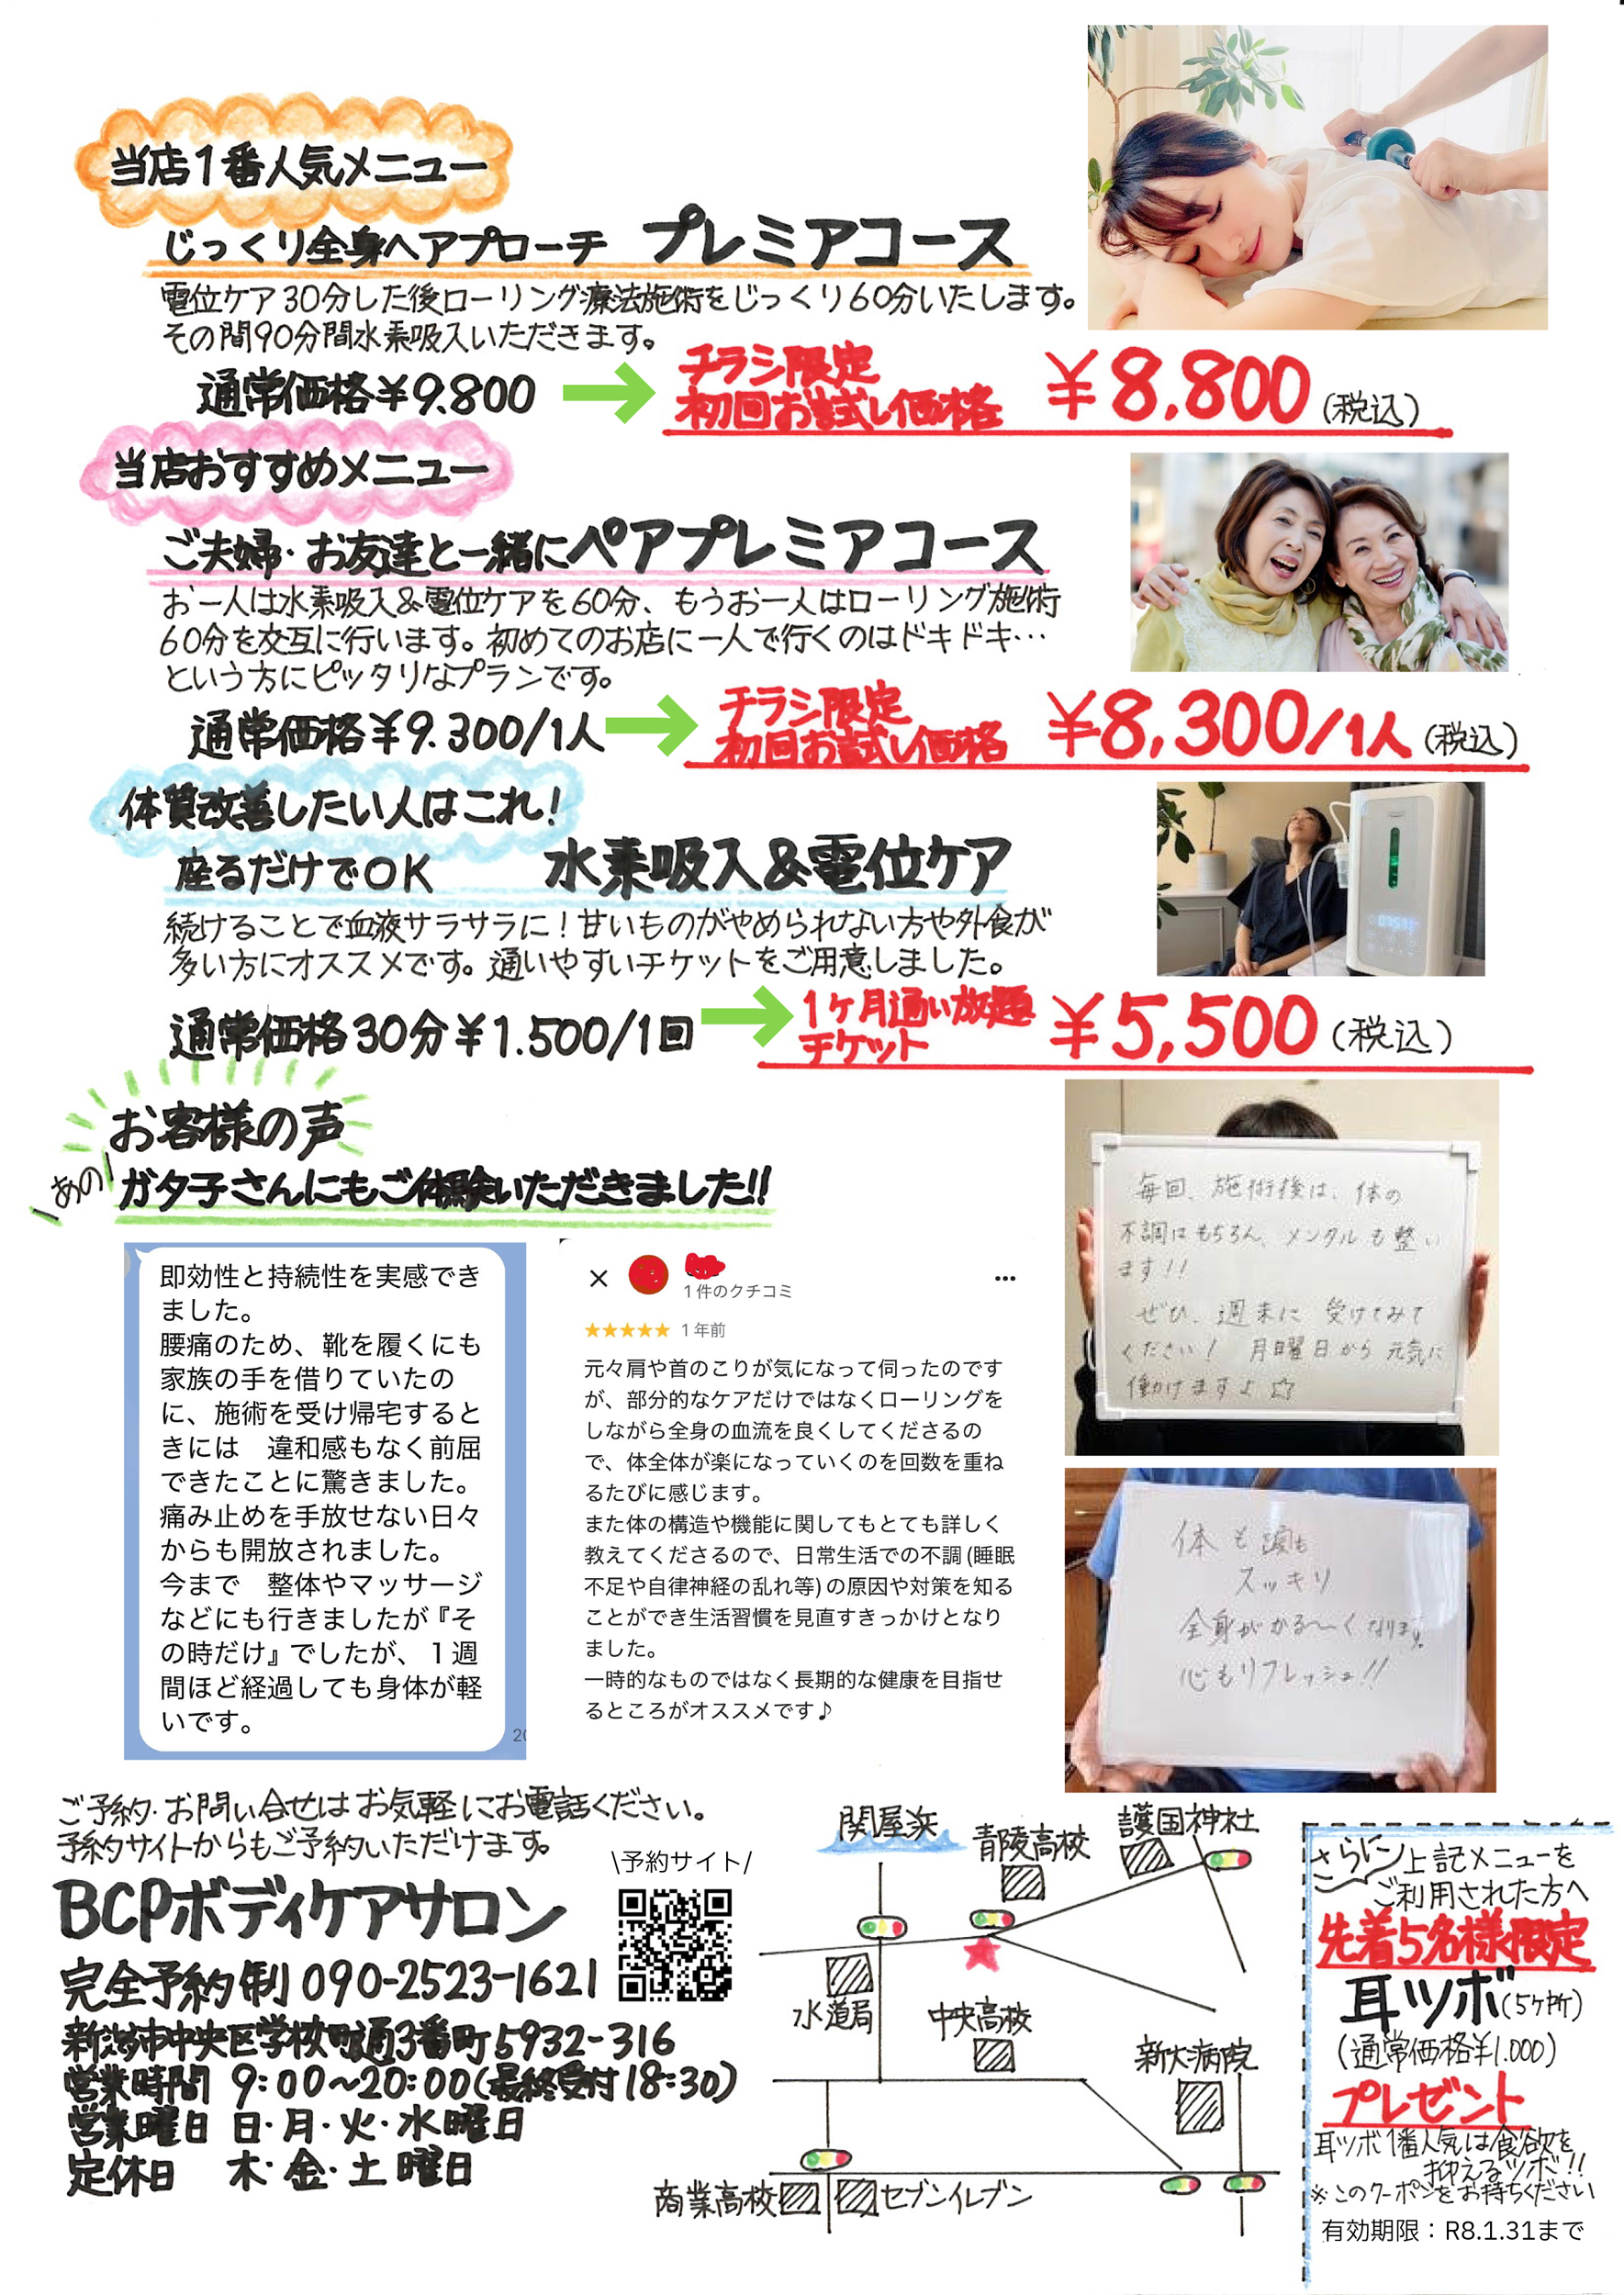 当店1番人気メニュー
じっくり全身へアプローチ プレミアコース
電位ケア30分した後ローリング療法施術をじっくり60分いたします。
その間90分間水素吸入いただきます。
通常価格¥9.800
チラシ限定
初回お試し価格 ¥8,800(税込)
当店おすすめメニュー
ご夫婦・お友達と一緒にペアプレミアコース
お一人は水素吸入&電位ケアを60分、もうお一人はローリング施術
60分を交互に行います。初めてのお店に一人で行くのはドキドキ…
という方にピッタリなプランです。
通常価格¥9.300/1人
チラシ限定
初回お試し価格 ¥8,300/1人(税込)
体質改善したい人はこれ!
座るだけでOK 水素吸入&電位ケア
続けることで血液サラサラに!甘いものがやめられない方や外食が
多い方にオススメです。通いやすいチケットをご用意しました。
通常価格30分¥1.500/1回
1ヶ月通い放題
チケット ¥5,500(税込)
お客様の声
\あの/ ガタ子さんにもご体験いただきました!!
即効性と持続性を実感でき
ました。
腰痛のため、靴を履くにも
家族の手を借りていたの
に、施術を受け帰宅すると
きには 違和感もなく前屈
できたことに驚きました。
痛み止めを手放せない日々
からも開放されました。
今まで 整体やマッサージ
などにも行きましたが『そ
の時だけ』でしたが、1週
間ほど経過しても身体が軽
いです。
1件のクチコミ
★★★★★ 1年前
元々肩や首のこりが気になって伺ったのです
が、部分的なケアだけではなくローリングを
しながら全身の血流を良くしてくださるの
で、体全体が楽になっていくのを回数を重ね
るたびに感じます。
また体の構造や機能に関してもとても詳しく
教えてくださるので、日常生活での不調(睡眠
不足や自律神経の乱れ等)の原因や対策を知る
ことができ生活習慣を見直すきっかけとなり
ました。
一時的なものではなく長期的な健康を目指せ
るところがオススメです♪
毎回、施術後は、体の
不調はもちろん、メンタルも整い
ます!!
ぜひ、週末に 受けてみて
ください! 月曜日から元気に
働けますよ☆
体も頭も
スッキリ
全身がかる〜くなります。
心もリフレッシュ!!
ご予約・お問い合せはお気軽にお電話ください。
予約サイトからもご予約いただけます。
\予約サイト/
BCPボディケアサロン
完全予約制 090-2523-1621
新潟市中央区学校町通3番町5932-316
営業時間 9:00~20:00(最終受付18:30)
営業曜日 日・月・火・水曜日
定休日 木・金・土曜日
関屋浜
青陵高校
護国神社
水道局
中央高校
新大病院
商業高校
セブンイレブン
さらに 上記メニューを
ご利用された方へ
先着5名様限定
耳ツボ(5ヶ所)
(通常価格¥1.000)
プレゼント
耳ツボ1番人気は食欲を
抑えるツボ!!
※このクーポンをお持ちください
有効期限:R8.1.31まで